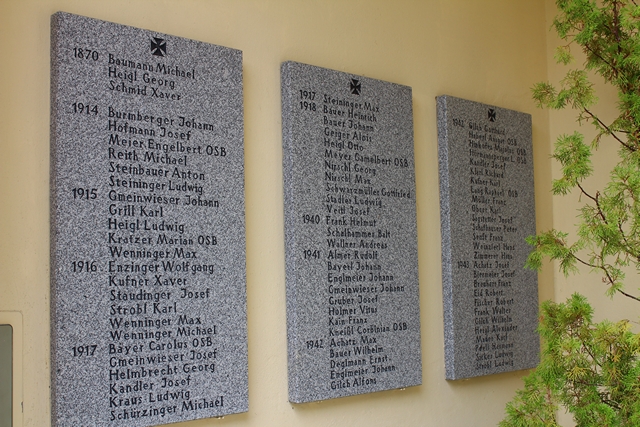 1870 Baumann Michael
Heigl Georg
Schmid Xaver
1914 Burmberger Johann
Hofmann Josef
Meier Engelbert OSB
Reith Michael
Steinbauer Anton
Steininger Ludwig
1915 Gmeinwieser Johann
Grill Karl
Heigl Ludwig
Kratzer Marian OSB
Wenninger Max
1916 Enzinger Wolfgang
Kufner Xaver
Staudinger Josef
Strobl Karl
Wenninger Max
Wenninger Michael
1917 Bayer Carolus OSB
Gmeinwieser Josef
Helmbrecht Georg
Kandler Josef
Kraus Ludwig
Schürzinger Michael
1917 Steininger Max
1918 Bauer Heinrich
Bauer Johann
Geiger Alois
Heigl Otto
Meyer Gamelbert OSB
Nirschl Georg
Nirschl Max
Schwarzmüller Gottfried
Stadler Ludwig
Veitl Josef
1940 Frank Helmut
Schalhammer Balt
Wallner Andreas
1941 Almer Rudolf
Bayerl Johann
Englmeier Johann
Gmeinwieser Johann
Gruber Josef
Holmer Vitus
Kain Franz
Kneißl Corbinian OSB
1942 Achatz Max
Bauer Wilhelm
Deglmann Ernst
Englmeier Johann
Gilch Alfons
1942 Gilch Gotthard
OSB
OSB
OSB
Kandler Josef
Karl
Lang Raphael OSB
Müller Franz
Karl
Josef
Peter
Senft Franz
Hans
Zimmerer
1943 Achatz Josef
Josef
Franz
Robert
Fischer Robert
Frank Walter
Gilch Wilhelm
Heigl Alexander
Karl
Ludwig
Strobl Ludwig